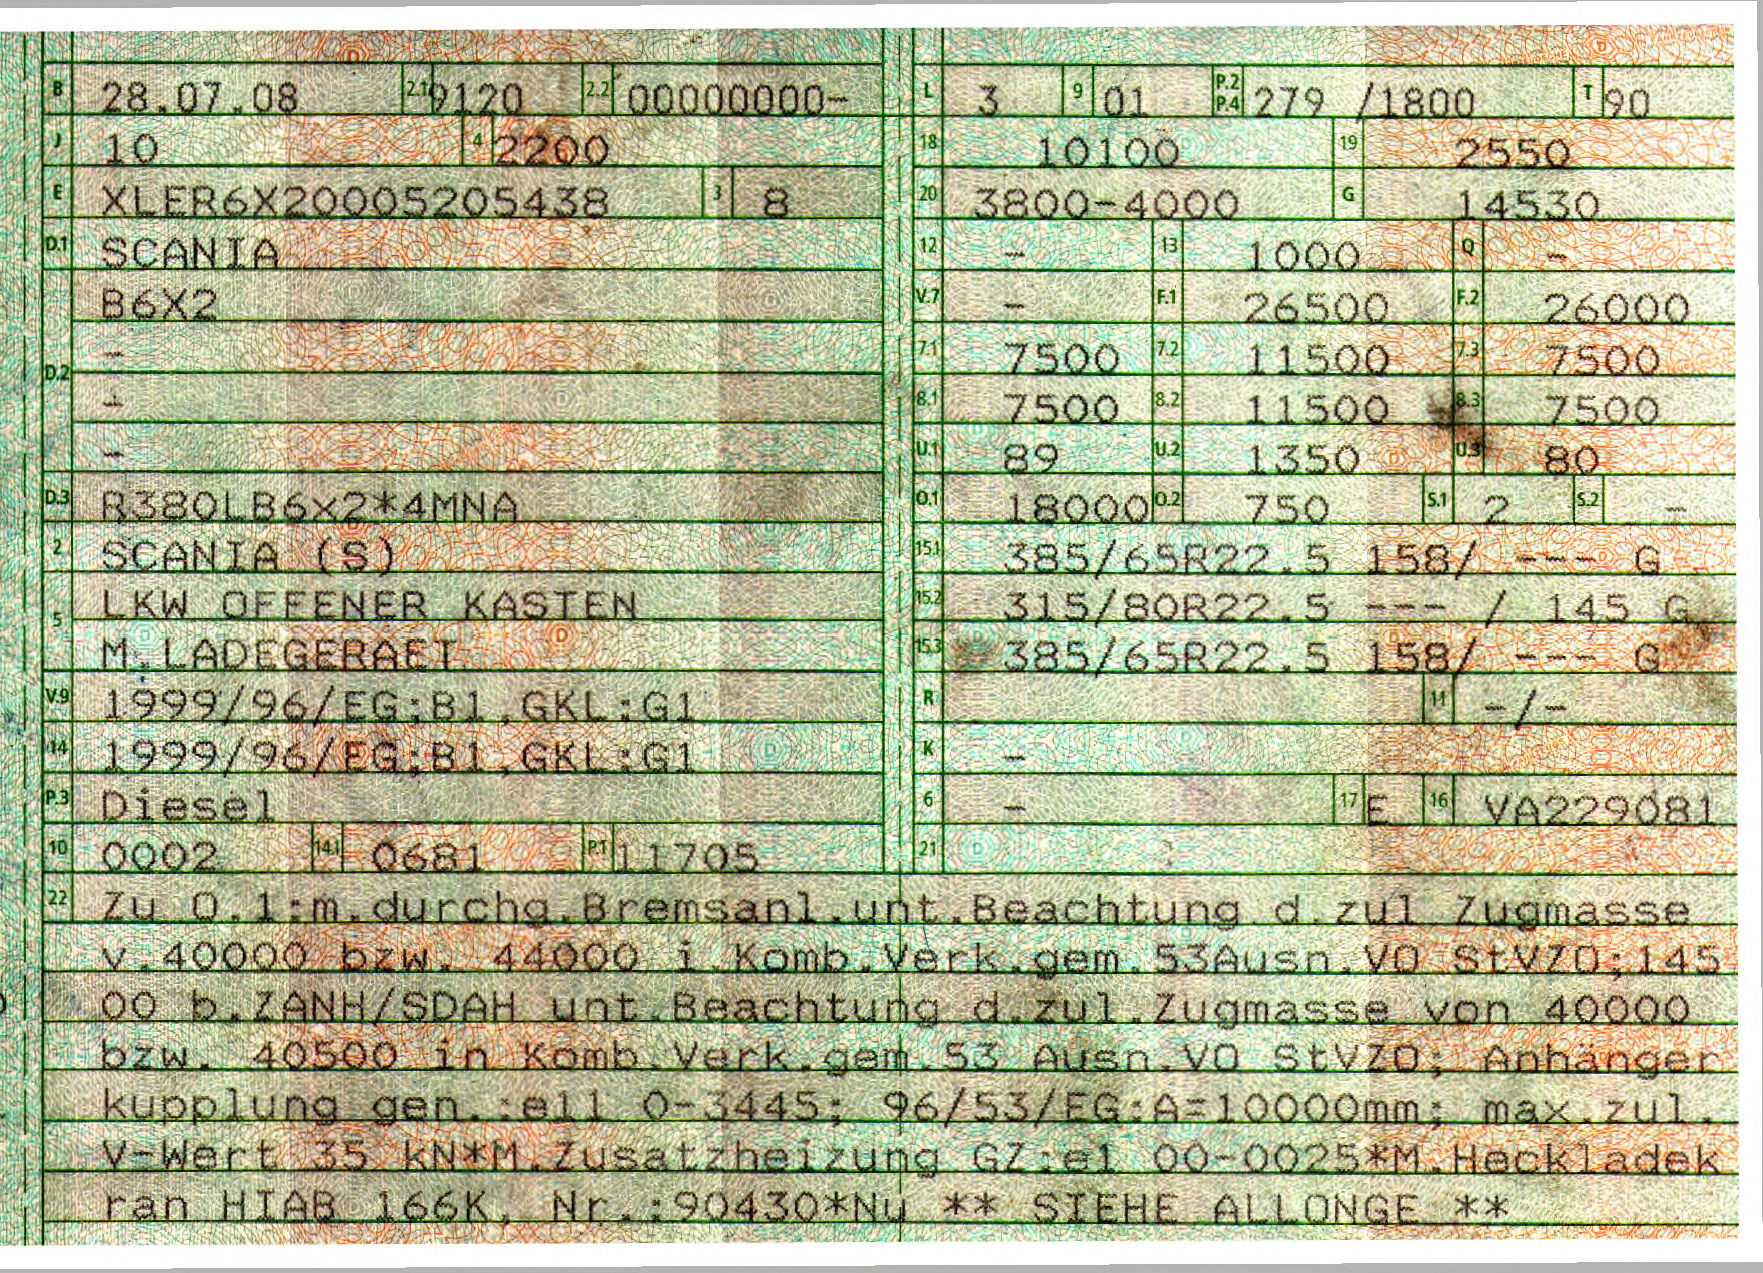 B 28.07.08 2.1 9120 2.2 00000000-
J 10 4 2200
E XLER6X20005205438 3 8
D.1 SCANIA
B6X2
-
D.2 -
-
D.3 R380LB6x2*4MNA
2 SCANIA (S)
5 LKW OFFENER KASTEN
M.LADEGERAET
V.9 1999/96/EG;B1,GKL:G1
14 1999/96/EG;B1,GKL:G1
P.3 Diesel
10 0002 14.1 0681 P.1 11705
L 3 9 01 P.2 P.4 279 /1800 T 90
18 10100 19 2550
20 3800-4000 G 14530
12 - 13 1000 Q -
V.7 - F.1 26500 F.2 26000
7.1 7500 7.2 11500 7.3 7500
8.1 7500 8.2 11500 8.3 7500
U.1 89 U.2 1350 U.3 80
O.1 18000 O.2 750 S.1 2 S.2 -
15.1 385/65R22.5 158/ --- G
15.2 315/80R22.5 --- / 145 G
15.3 385/65R22.5 158/ --- G
R 11 -/-
K -
6 - 17 E 16 VA229081
21
22 Zu O.1:m.durchg.Bremsanl.unt.Beachtung d.zul Zugmasse
v.40000 bzw. 44000 i.Komb.Verk.gem.53Ausn.VO StVZO;145
00 b.ZANH/SDAH unt.Beachtung d.zul.Zugmasse von 40000
bzw. 40500 in Komb.Verk.gem.53 Ausn.VO StVZO; Anhänger
kupplung gen.:e11 0-3445; 96/53/EG:A=10000mm; max.zul.
V-Wert 35 kN*M.Zusatzheizung GZ:e1 00-0025*M.Heckladek
ran HIAB 166K, Nr.:90430*Nu ** SIEHE ALLONGE **